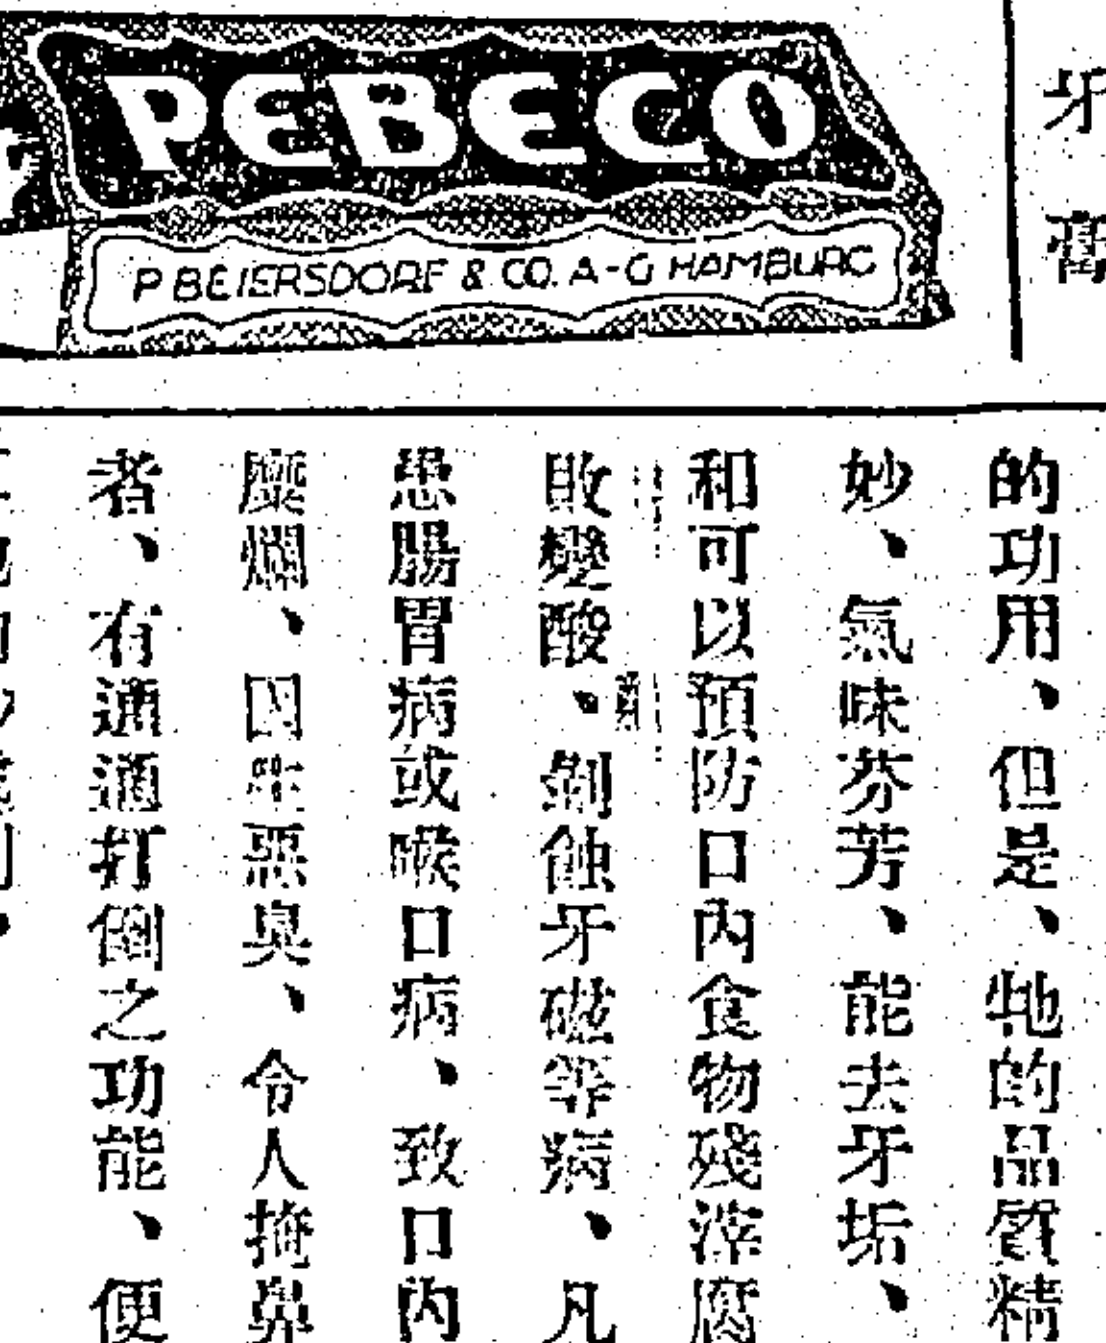 PEBECO
P. BEIERSDORF & CO. A-G HAMBURG
牙
的功用、但是、牠的品質精
妙、氣味芬芳、能去牙垢、
和可以預防口內食物殘滓腐
敗變酸、剝蝕牙磁等病、凡
患腸胃病或喉口病、致口內
糜爛、因生惡臭、令人掩鼻
者、有通通打倒之功能、便